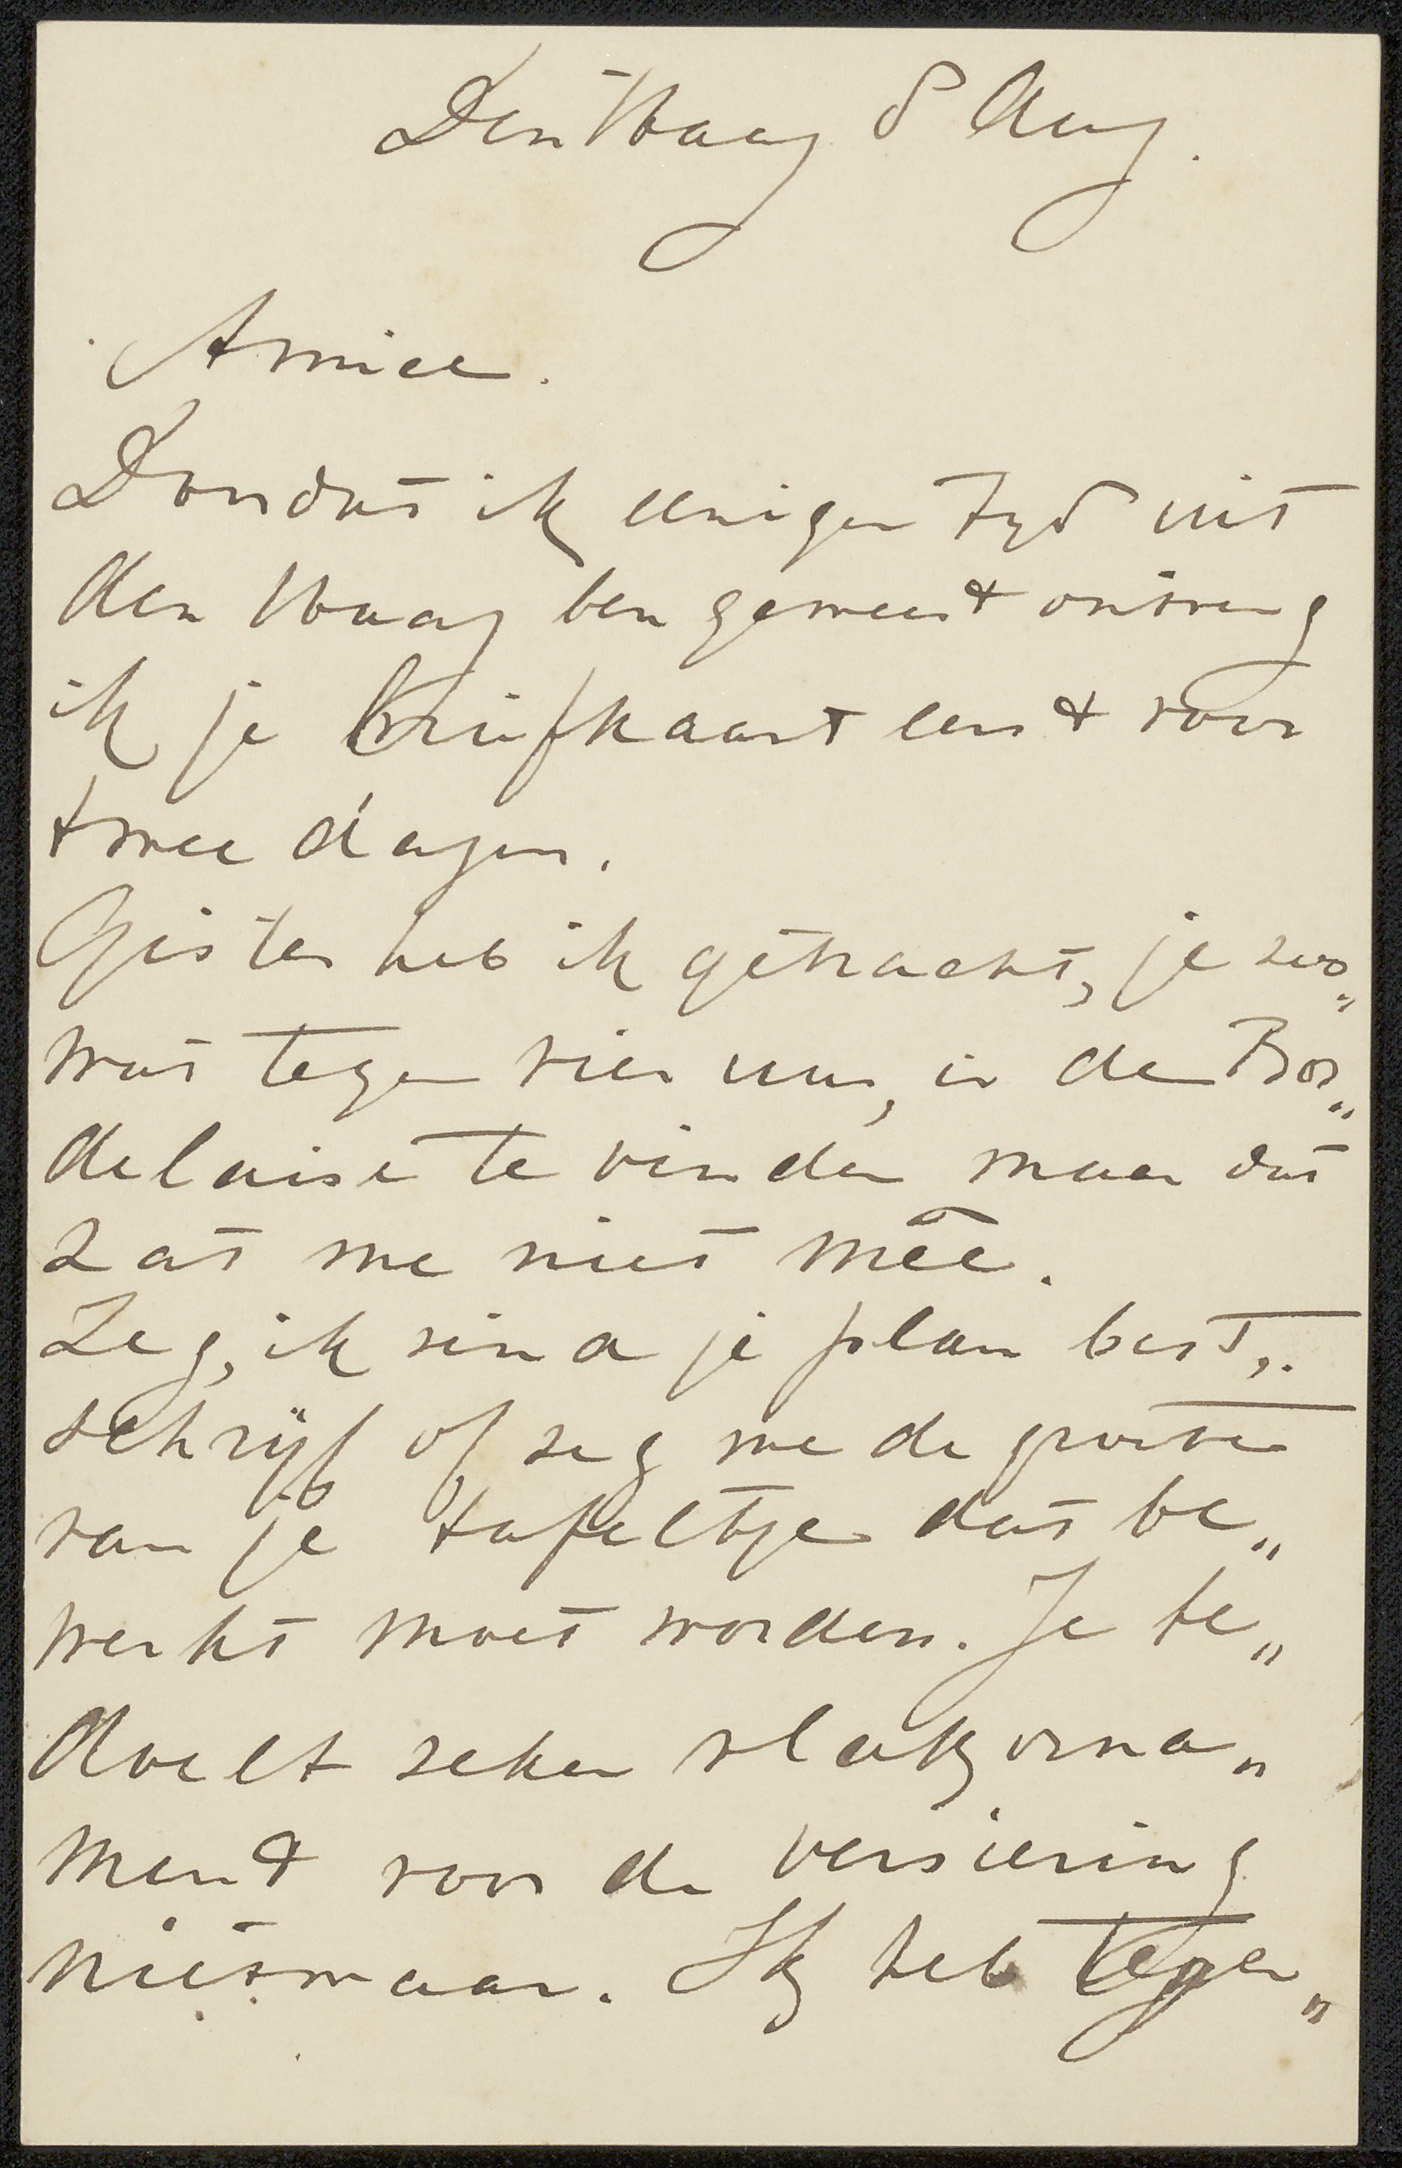 Den Haag 8 Aug.
Amice.
Doordat ik eenigen tyd uit
den Haag ben geweest ontving
ik je briefkaart eerst voor
twee dagen.
Gister heb ik getracht, je zoo„
wat tegen vier uur, in de Bor„
delaise te vinden maar dat
zat me niet meê.
Zeg, ik vind je plan best,.
schrijf of zeg me de grootte
van je tafeltje dat be„
werkt moet worden. Je be„
doelt zeker vlakorna„
ment voor de versiering
nietwaar. Ik heb tegen„